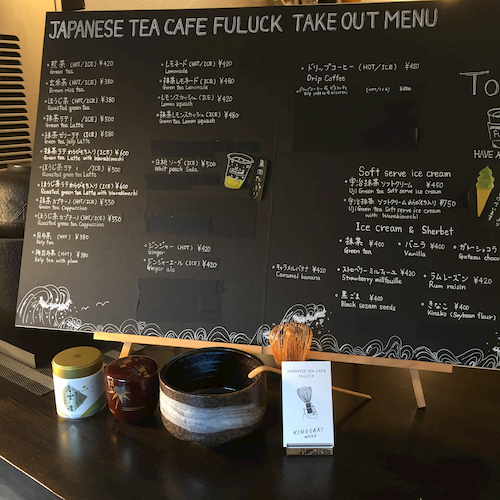 JAPANESE TEA CAFE FULUCK TAKE OUT MENU
・煎茶 (HOT/ICE) ¥420
Green tea
・玄米茶 (HOT/ICE) ¥380
Brown rice tea
・ほうじ茶 (HOT/ICE) ¥380
Roasted green tea
・抹茶ラテ (/ICE) ¥500
Green tea Latte
・抹茶ゼリーラテ (ICE) ¥580
Green tea Jelly Latte
・抹茶ラテ わらびもち入り (ICE) ¥600
Green tea Latte with Warabimochi
・ほうじ茶ラテ ( /ICE) ¥500
Roasted green tea Latte
・ほうじ茶ラテ わらびもち入り (ICE) ¥600
Roasted green tea Latte with Warabimochi
・抹茶カプチーノ (HOT/ICE) ¥550
Green tea Cappuccino
・ほうじ茶カプチーノ (HOT/ICE) ¥550
Roasted green tea Cappuccino
・昆布茶 (HOT) ¥380
Kelp tea
・梅昆布茶 (HOT) ¥380
Kelp tea with plum
・レモネード (HOT/ICE) ¥420
Lemonade
・抹茶レモネード (HOT/ICE) ¥480
Green tea Lemonade
・レモンスカッシュ (ICE) ¥420
Lemon squash
・抹茶レモンスカッシュ (ICE) ¥480
Green tea Lemon squash
・白桃ソーダ (ICE) ¥500
White peach Soda
・ジンジャー (HOT) ¥420
Ginger
・ジンジャーエール (ICE) ¥420
Ginger ale
・ドリップコーヒー (HOT/ICE) ¥420
Drip Coffee
Soft serve ice cream
・宇治抹茶 ソフトクリーム ¥450
Uji Green tea Soft serve ice cream
・宇治抹茶 ソフトクリーム わらびもち入り ¥550
Uji Green tea Soft serve ice cream
with Warabimochi
Ice cream & Sherbet
・抹茶 ¥400
Green tea
・バニラ ¥400
Vanilla
・ガトーショコラ
Gateau chocolat
・キャラメルバナナ ¥420
Caramel banana
・ストロベリーミルフィーユ ¥420
Strawberry millfeuille
・ラムレーズン ¥420
Rum raisin
・黒ごま ¥400
Black sesame seeds
・きなこ ¥400
Kinako (Soybean flour)
To
HAVE A
JAPANESE TEA CAFE
FULUCK
KINOSAKI